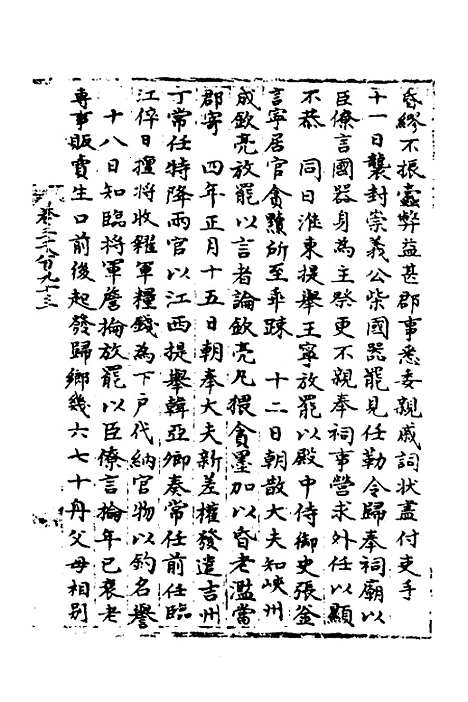 昏繆不振蠹弊益甚郡事悉委親戚詞狀盡付吏手
十一日襲封崇義公柴國器罷見任勒令歸奉祠廟以
臣僚言國器身為主祭更不親奉祠事營求外任以顯
不恭　同日淮東提舉王寧放罷以殿中侍御史張釜
言寧居官貪黷所至乖踈　十二日朝散大夫知峽州
成欽亮放罷以言者論欽亮凡猥貪墨加以昏老濫當
郡寄　四年正月十五日朝奉大夫新差權發遣吉州
丁常任特降兩官以江西提舉韓亞卿奏常任前任臨
江倅日擅將收糴軍糧錢為下戶代納官物以釣名譽
十八日知臨將軍詹掄放罷以臣僚言掄年已衰老
專事販賣生口前後起發歸鄉幾六七十舟父母相別
卷三千八百九十三